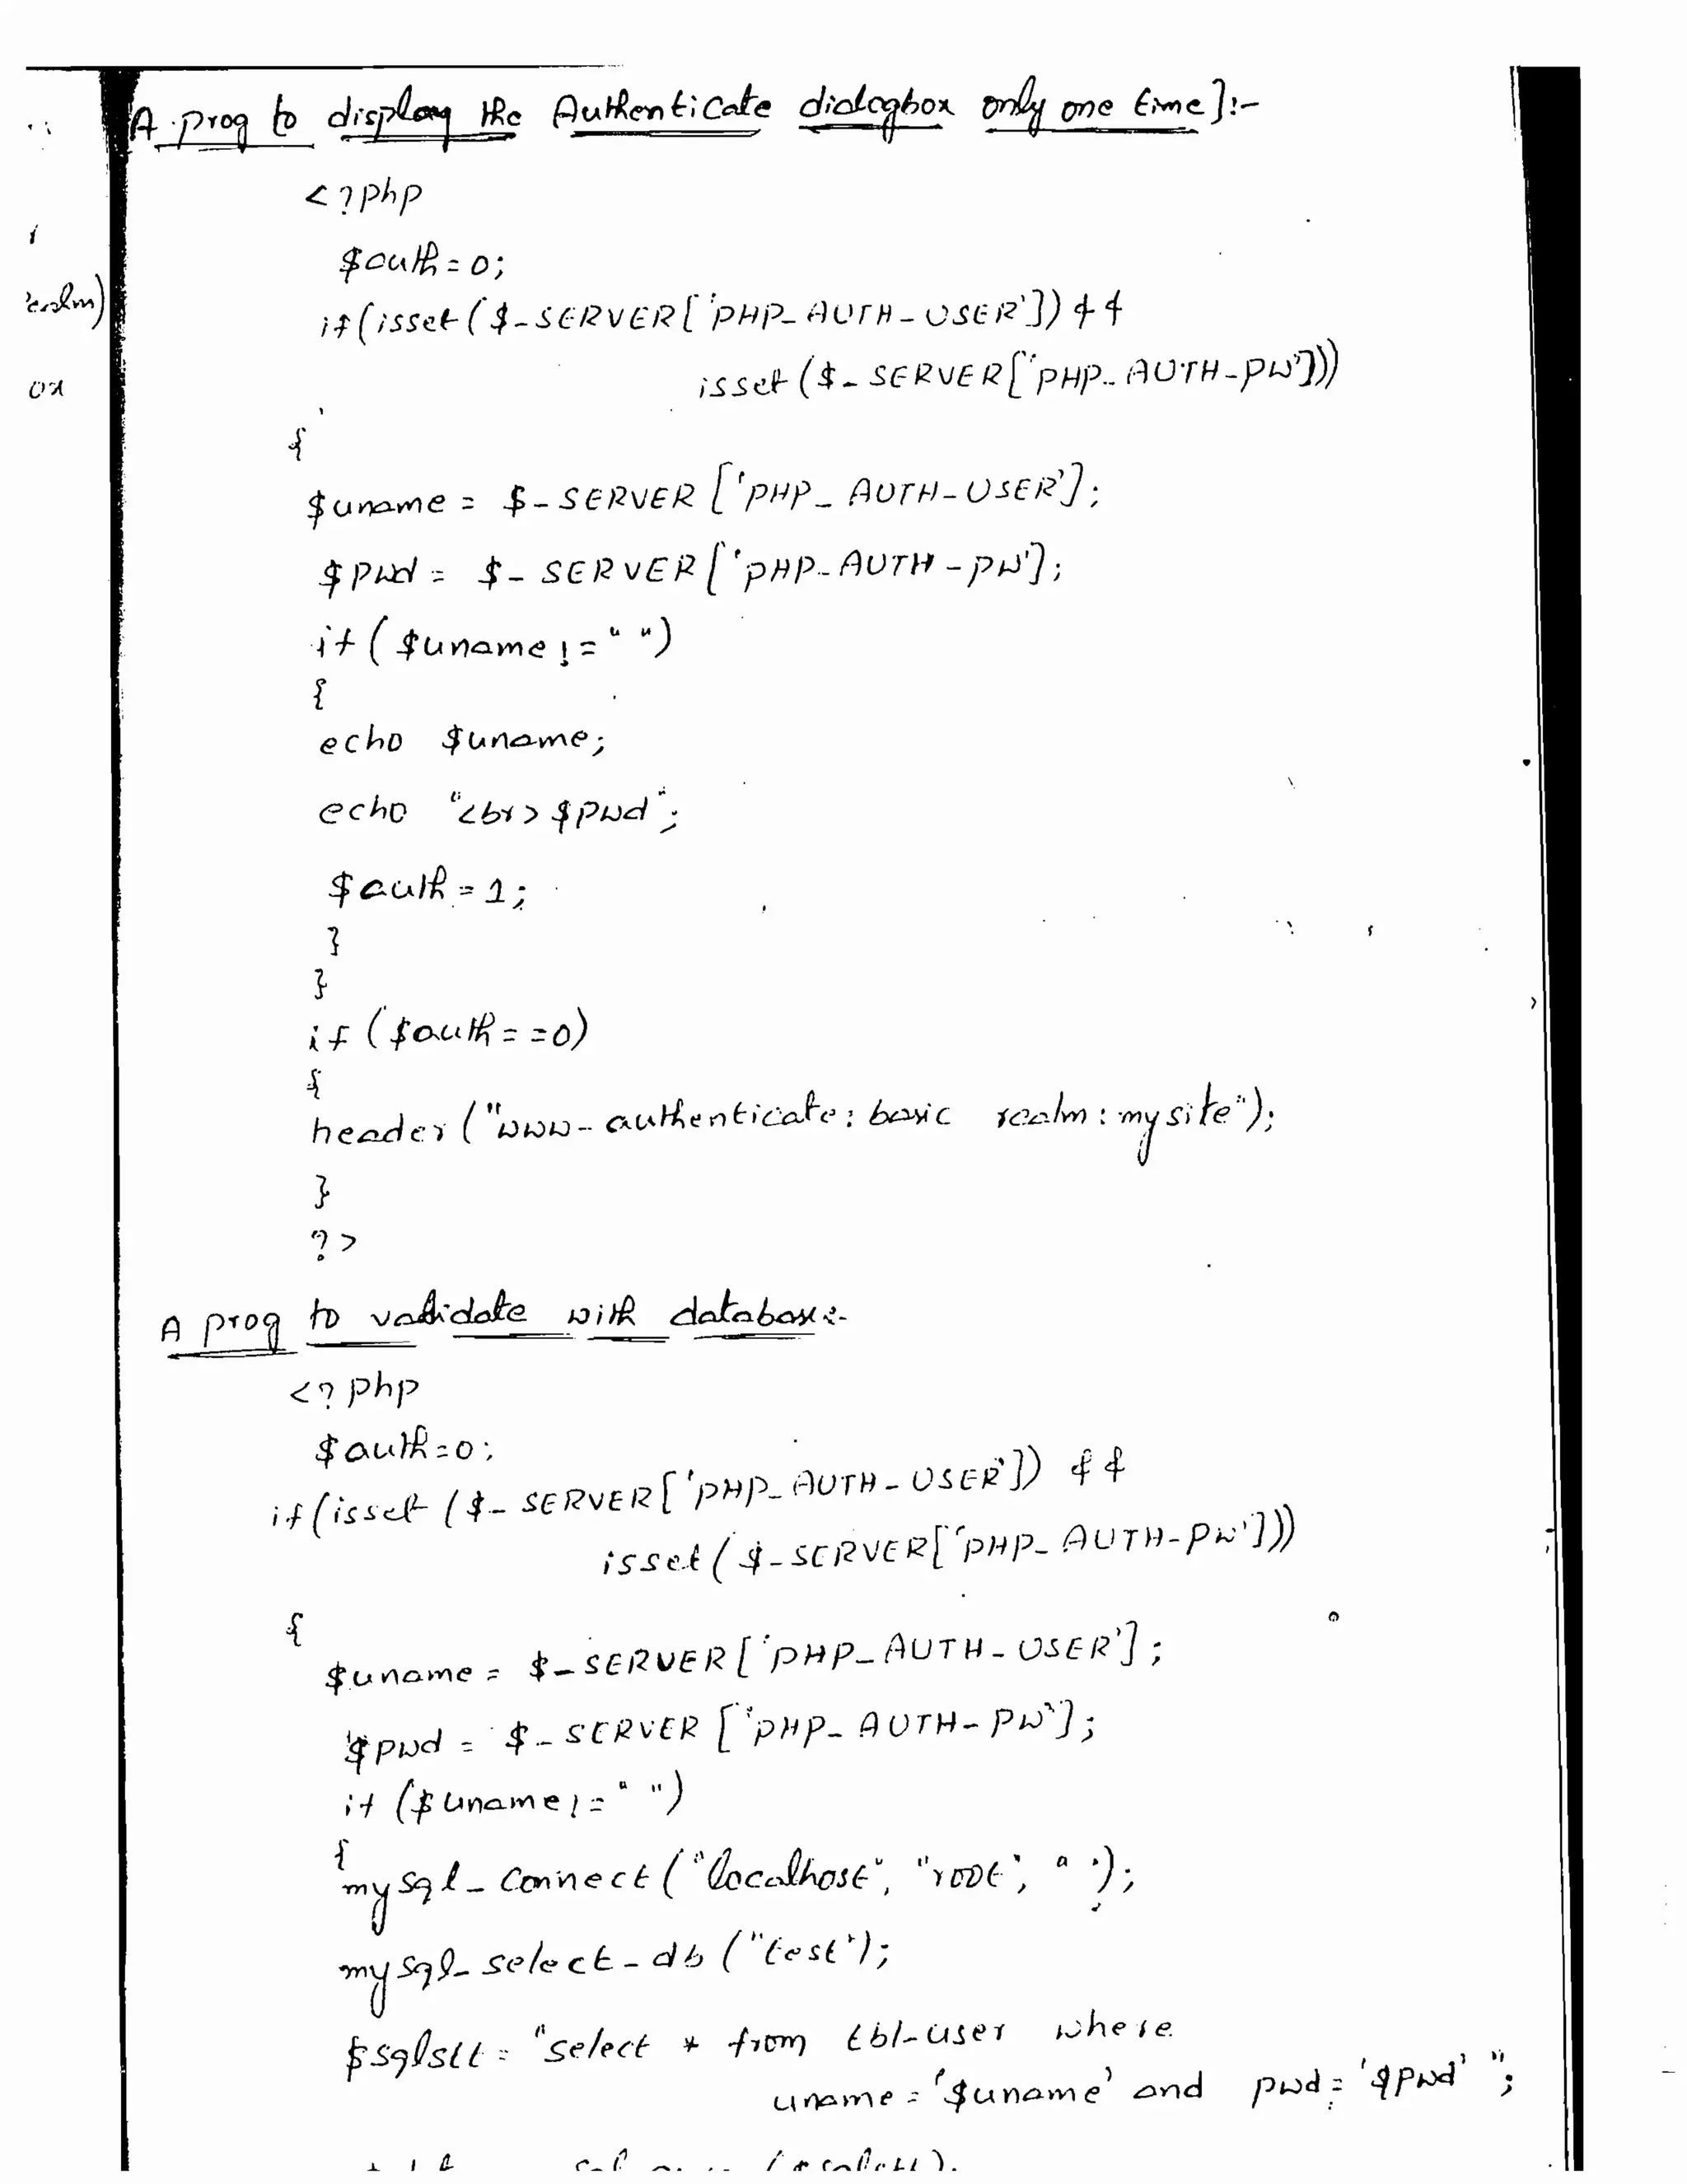 A prog to display the Authenticate dialogbox only one time]:-
<?php
$auth=0;
if(isset($_SERVER['PHP_AUTH_USER']) &&
isset($_SERVER['PHP_AUTH_PW']))
{
$uname = $_SERVER['PHP_AUTH_USER'];
$pwd = $_SERVER['PHP_AUTH_PW'];
if($uname!=" ")
{
echo $uname;
echo "<br>$pwd";
$auth=1;
}
}
if($auth==0)
{
header("www-authenticate: basic realm:mysite");
}
?>
A prog to validate with database:-
<?php
$auth=0;
if(isset($_SERVER['PHP_AUTH_USER']) &&
isset($_SERVER['PHP_AUTH_PW']))
{
$uname = $_SERVER['PHP_AUTH_USER'];
$pwd = $_SERVER['PHP_AUTH_PW'];
if($uname!=" ")
{
mysql_connect("localhost", "root", " ");
mysql_select_db("test");
$sqlstt = "select * from tbl_user where
uname='$uname' and pwd='$pwd' ";
ox